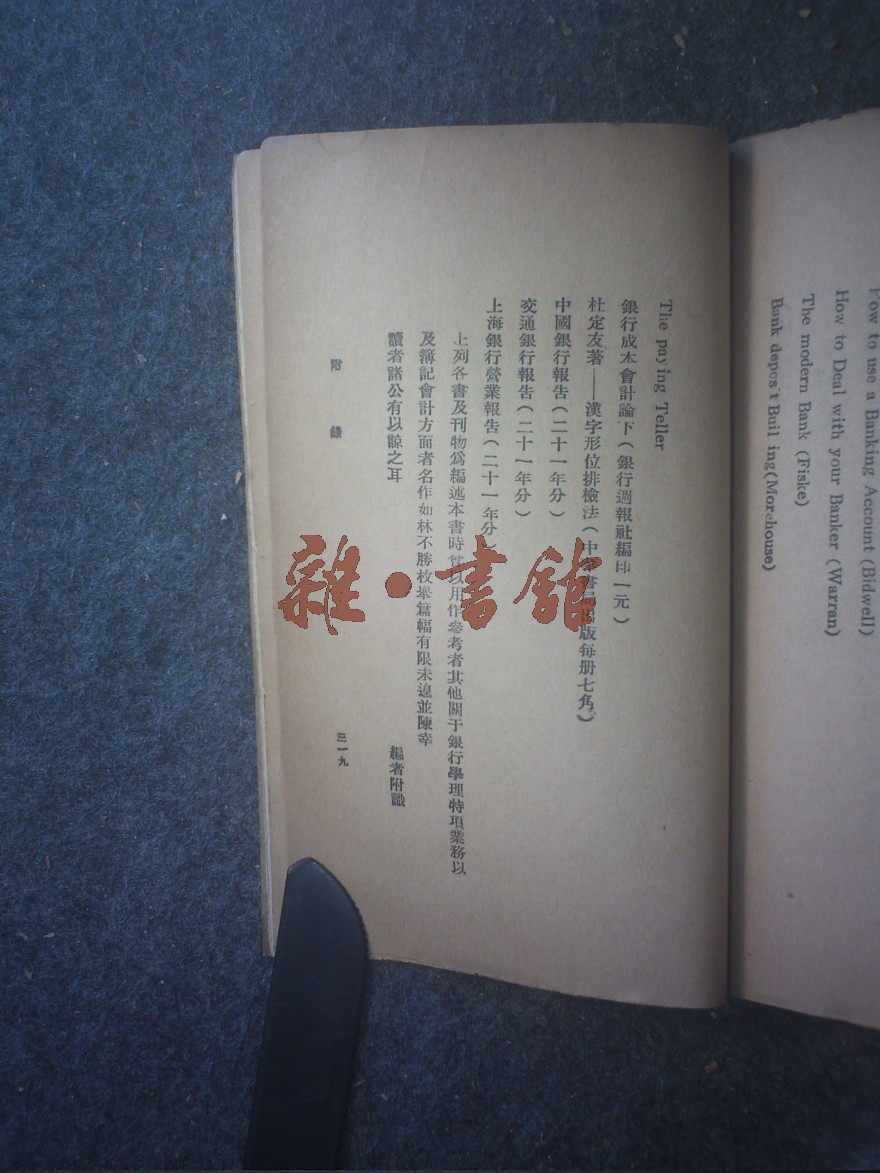 How to use a Banking Account (Bidwell)
How to Deal with your Banker (Warran)
The modern Bank (Fiske)
Bank depos't Buil ing(Morehouse)
The paying Teller
銀行成本會計論下(銀行週報社編印一元)
杜定友著——漢字形位排檢法(中華書局出版每册七角)
中國銀行報告(二十一年分)
交通銀行報告(二十一年分)
上海銀行營業報告(二十一年分)
上列各書及刊物爲編述本書時以用作參考者其他關于銀行學理特項業務以
及簿記會計方面者名作如林不勝枚舉篇幅有限未遑並陳幸
讀者諸公有以諒之耳 編者附識
附錄 三一九
雜·書館